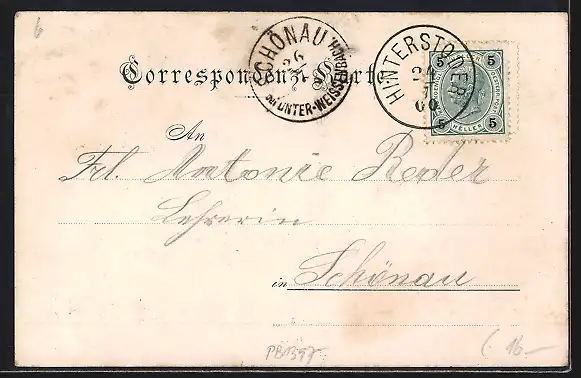 6
Correspondenz-Karte
SCHÖNAU
26
bei UNTER-WEISSENBACH
HINTERSTODER
24
7
00
5 5
5 5
HELLER
An
Frl. Antonie Reder
Lehrerin
in Schönau
PB1397
16-